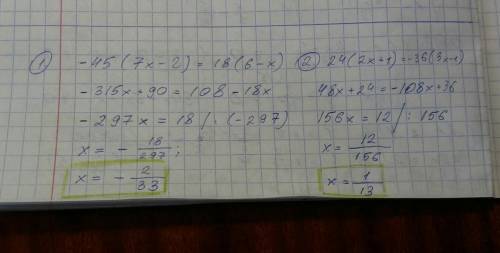 ① -45(7x-2)=18(6-x)
-315x+90=108-18x
-297x=18 /:(-297)
x=-18/297;
x=-2/33
② 24(2x+1)=-36(3x-1)
48x+24=-108x+36
156x=12 /:156
x=12/156
x=1/13